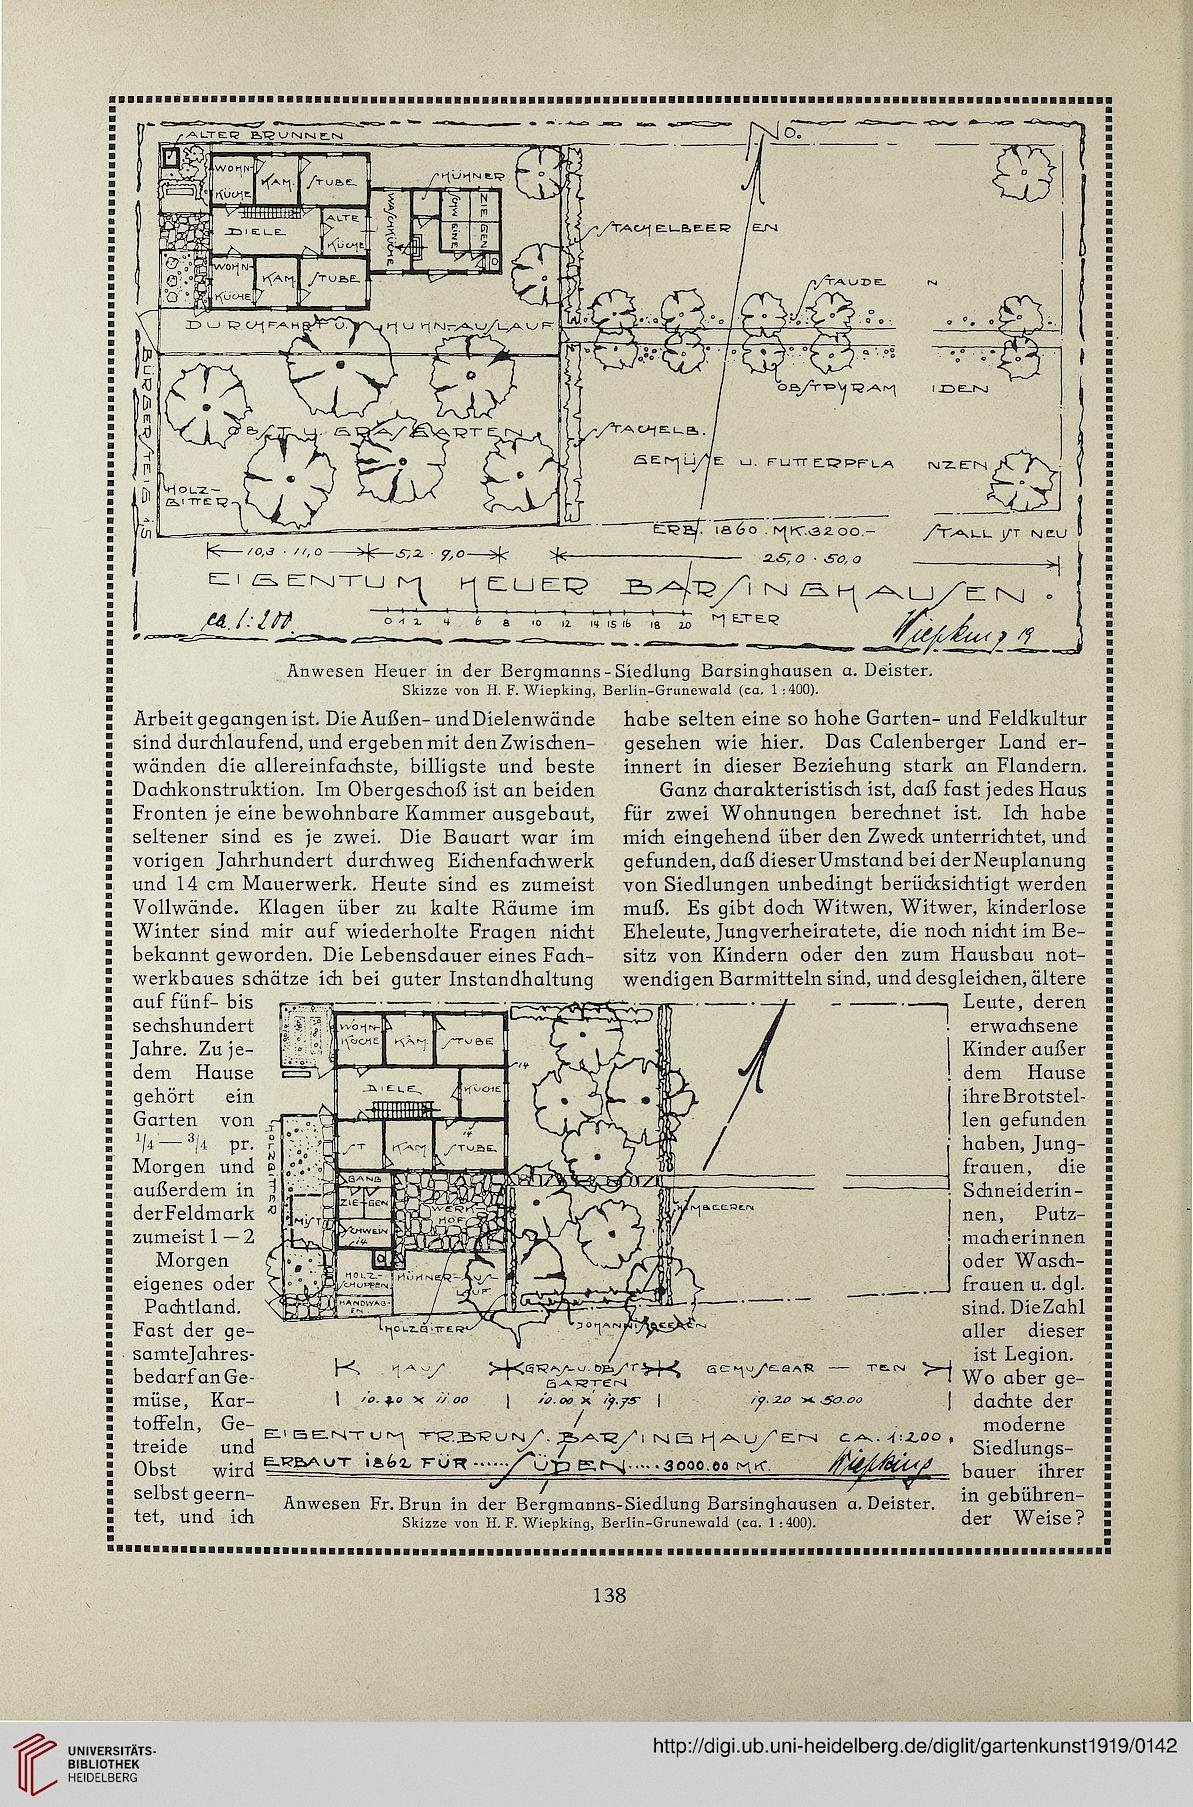 ALTER BRUNNEN
NO.
WOHN-
KÜCHE
KAM.
STUBE
HÜHNER
WASCHKÜCHE
SCHWEINE
ZIEGEN
STACHELBEEREN
DIELE
ALTE
KÜCHE
WOHN-
KÜCHE
KAM
STUBE
STAUDEN
DURCHFAHRT U. HUHN-AUSLAUF
BÜRGERSTEIG 1,5
OBSTPYRAMIDEN
OBST U. GRASGARTEN
STACHELB.
GEMÜSE U. FUTTERPFLANZEN
HOLZ-
GITTER
ERB. 1860. MK. 3200.-
STALL IST NEU
10,3 · 11,0
5,2 · 9,0
25,0 · 50,0
EIGENTUM HEUER BARSINGHAUSEN.
ca. 1:200
0 1 2 4 6 8 10 12 14 15 16 18 20 METER
Wiepking 19
Anwesen Heuer in der Bergmanns-Siedlung Barsinghausen a. Deister.
Skizze von H. F. Wiepking, Berlin-Grunewald (ca. 1:400).
Arbeit gegangen ist. Die Außen- und Dielenwände
sind durchlaufend, und ergeben mit den Zwischen-
wänden die allereinfachste, billigste und beste
Dachkonstruktion. Im Obergeschoß ist an beiden
Fronten je eine bewohnbare Kammer ausgebaut,
seltener sind es je zwei. Die Bauart war im
vorigen Jahrhundert durchweg Eichenfachwerk
und 14 cm Mauerwerk. Heute sind es zumeist
Vollwände. Klagen über zu kalte Räume im
Winter sind mir auf wiederholte Fragen nicht
bekannt geworden. Die Lebensdauer eines Fach-
werkbaues schätze ich bei guter Instandhaltung
auf fünf- bis
sechshundert
Jahre. Zu je-
dem Hause
gehört ein
Garten von
1/4 — 3/4 pr.
Morgen und
außerdem in
der Feldmark
zumeist 1 — 2
Morgen
eigenes oder
Pachtland.
Fast der ge-
samte Jahres-
bedarf an Ge-
müse, Kar-
toffeln, Ge-
treide und
Obst wird
selbst geern-
tet, und ich
habe selten eine so hohe Garten- und Feldkultur
gesehen wie hier. Das Calenberger Land er-
innert in dieser Beziehung stark an Flandern.
Ganz charakteristisch ist, daß fast jedes Haus
für zwei Wohnungen berechnet ist. Ich habe
mich eingehend über den Zweck unterrichtet, und
gefunden, daß dieser Umstand bei der Neuplanung
von Siedlungen unbedingt berücksichtigt werden
muß. Es gibt doch Witwen, Witwer, kinderlose
Eheleute, Jungverheiratete, die noch nicht im Be-
sitz von Kindern oder den zum Hausbau not-
wendigen Barmitteln sind, und desgleichen, ältere
Leute, deren
erwachsene
Kinder außer
dem Hause
ihre Brotstel-
len gefunden
haben, Jung-
frauen, die
Schneiderin-
nen, Putz-
macherinnen
oder Wasch-
frauen u. dgl.
sind. Die Zahl
aller dieser
ist Legion.
Wo aber ge-
dachte der
moderne
Siedlungs-
bauer ihrer
in gebühren-
der Weise?
WOHN-
KÜCHE
KAM.
STUBE
14
DIELE
KÜCHE
14
ST
KAM
STUBE
HOLZGITTER
GANG
ZIEGEN
WERK-
HOF
MIST
SCHWEIN
14
HIMBEEREN
HOLZ-
SCHUPPEN
HÜHNER-AUS-
LAUF
HANDWAG-
EN
HOLZGITTER
JOHANNISBEEREN
HAUS
GRAS-U. OBST
GARTEN
GEMÜSEGARTEN
10.20 × 11.00
10.00 × 19.75
19.20 × 50.00
EIGENTUM FR. BRUNS. BARSINGHAUSEN CA. 1:200.
ERBAUT 1862 FÜR ...... SÜDEN ..... 3000.00 MK.
Wiepking
Anwesen Fr. Brun in der Bergmanns-Siedlung Barsinghausen a. Deister.
Skizze von H. F. Wiepking, Berlin-Grunewald (ca. 1:400).
138
UNIVERSITÄTS-
BIBLIOTHEK
HEIDELBERG
http://digi.ub.uni-heidelberg.de/diglit/gartenkunst1919/0142